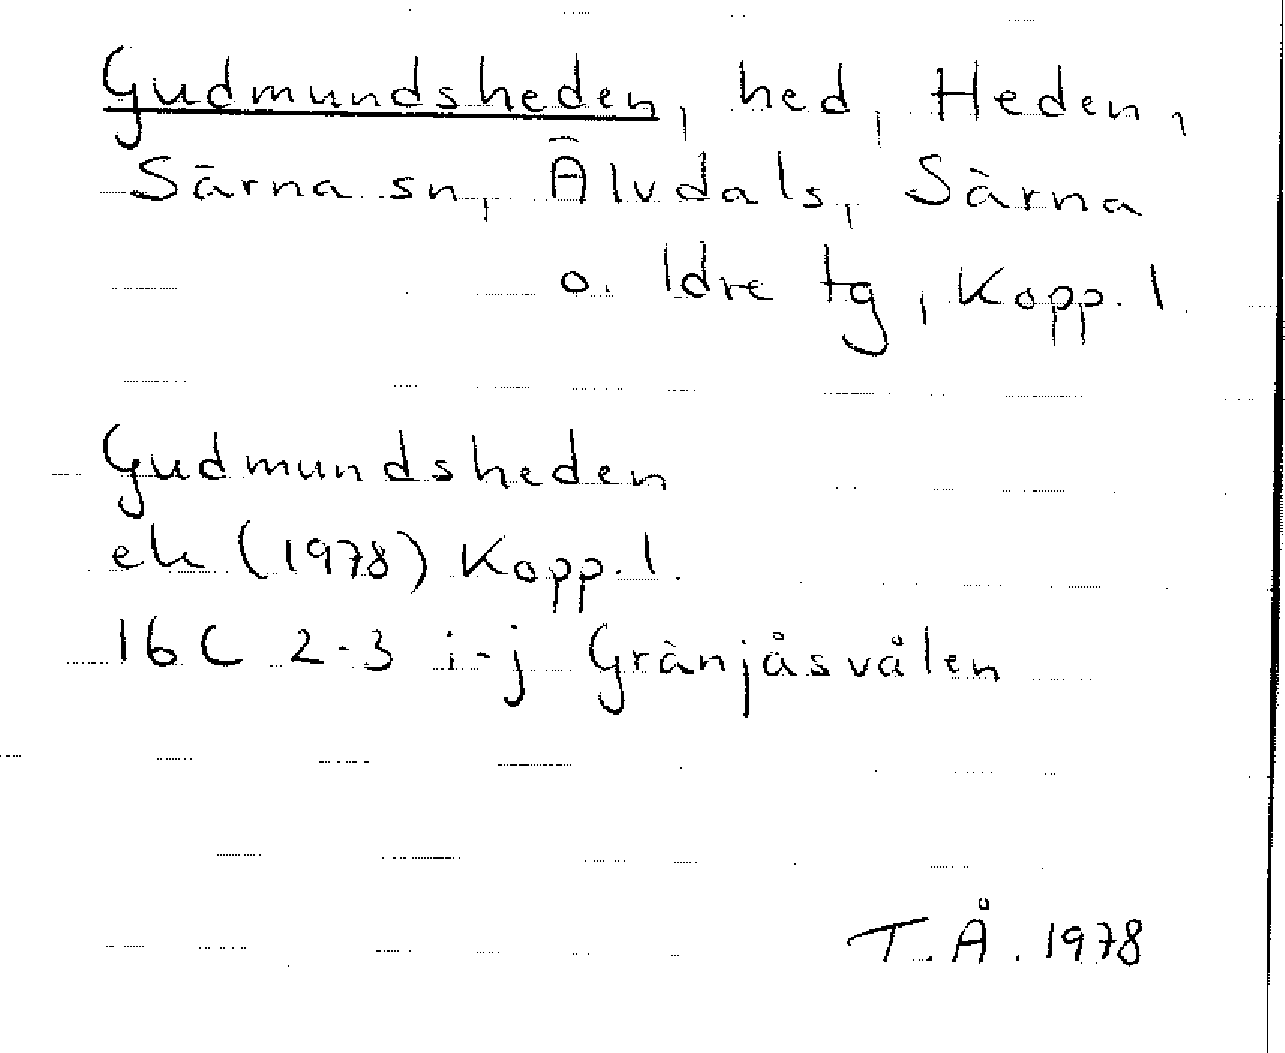 Gudmundsheden, hed, Heden,
Särna sn, Älvdals, Särna
o. Idre tg, Kopp. l.
Gudmundsheden
ek (1978) Kopp. l.
16C 2-3 i-j Gränjåsvålen
T.Å. 1978